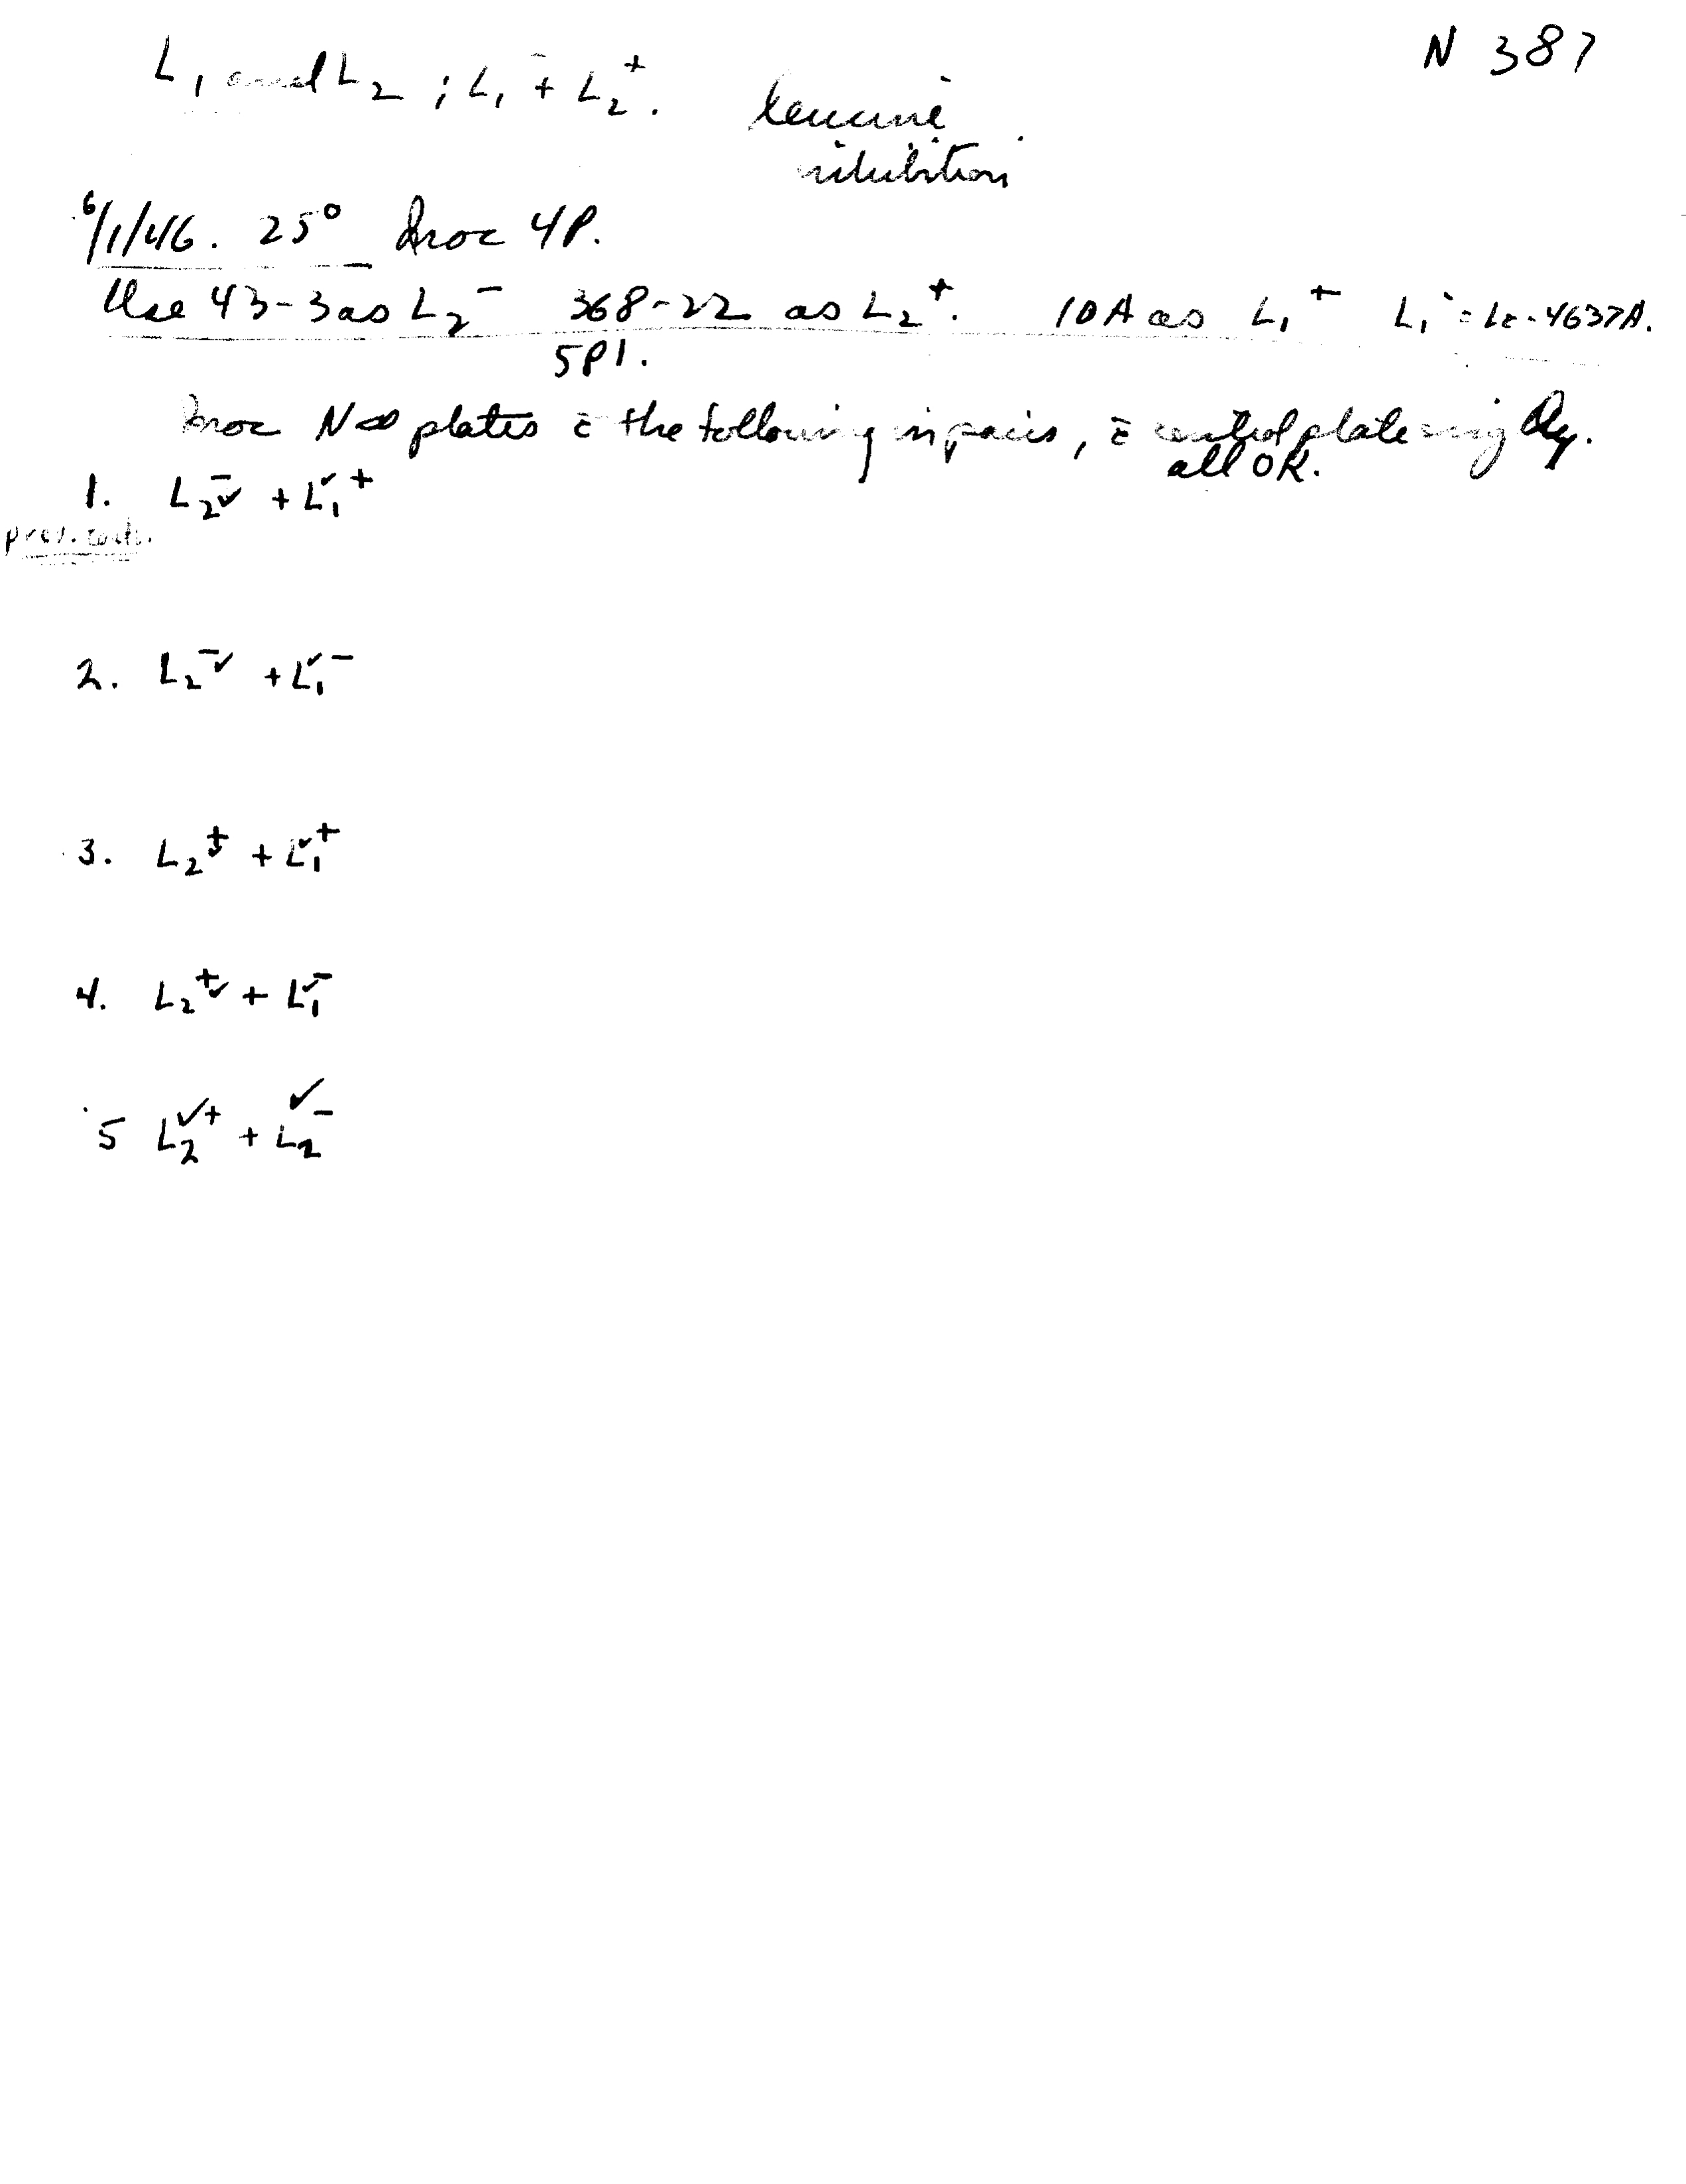 N 387
L₁ and L₂ ; L₁⁻ + L₂⁺. leucine
inhibition
6/1/46. 25° Inoc 4P.
Use 43-3 as L₂⁻ 368-22 as L₂⁺. 10A as L₁⁺ L₁⁻ = Lc-4637A.
5P1.
Inoc N∞ plates c̄ the following in pairs, c̄ control plate
all OK.
1. L₂⁻✓ + L₁✓⁺
prev. cont.
2. L₂⁻✓ + L₁✓⁻
3. L₂⁺✓ + L₁✓⁺
4. L₂⁺✓ + L₁✓⁻
5 L₂✓⁺ + L₂✓⁻